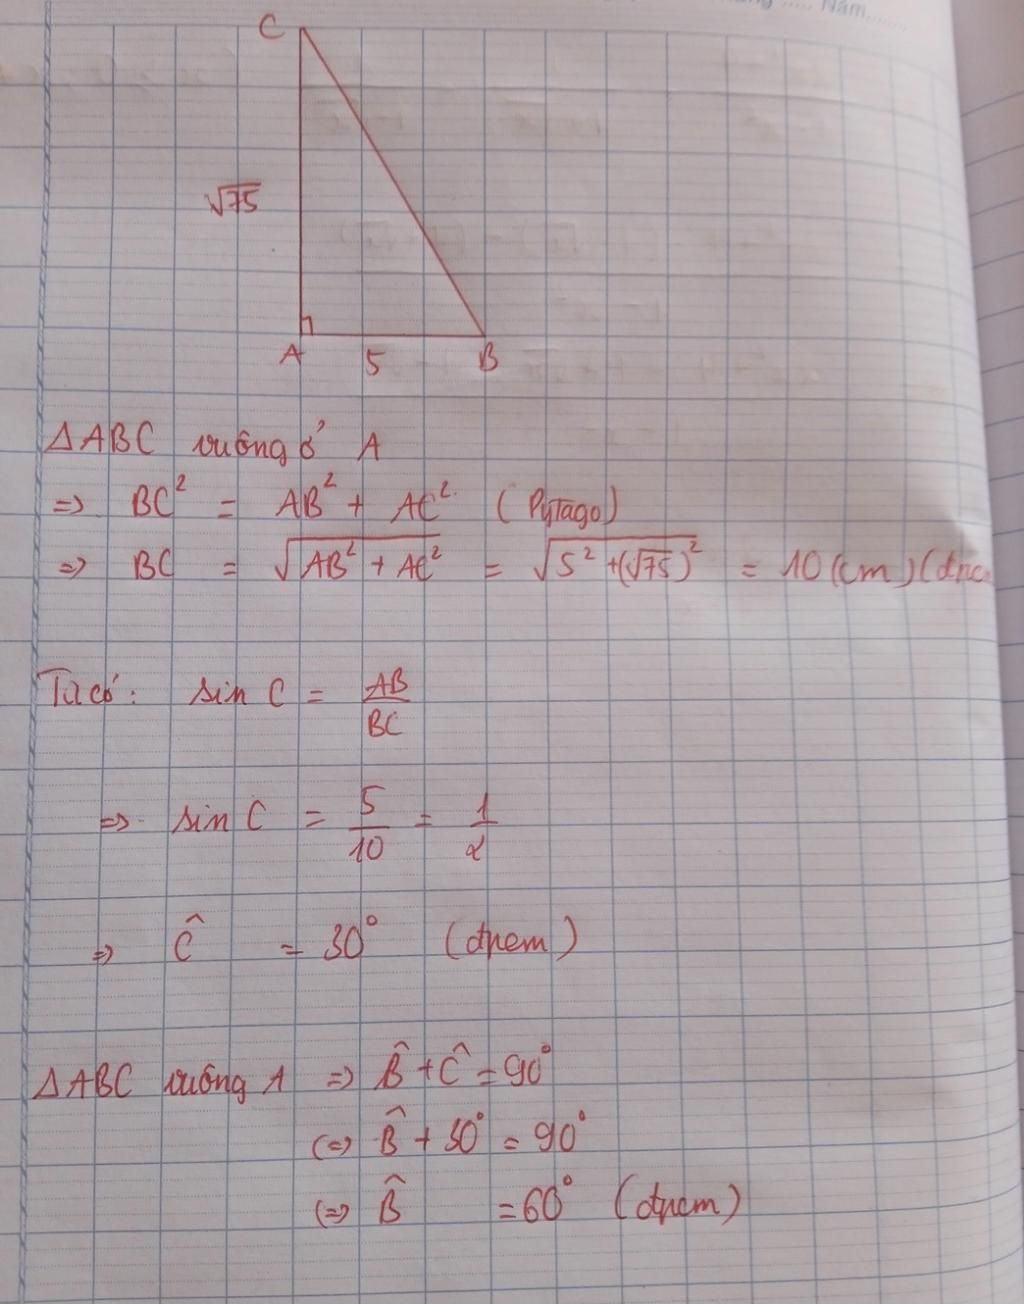 Năm......
C
√75
A 5 B
ΔABC vuông ở A
=> BC² = AB² + AC² (Pytago)
=> BC = √(AB² + AC²) = √(5² + (√75)²) = 10 (cm) (đpc
Ta có: sin C = AB/BC
=> sin C = 5/10 = 1/2
=> Ĉ = 30° (đpcm)
ΔABC vuông A => B̂ + Ĉ = 90°
(=) B̂ + 30° = 90°
(=) B̂ = 60° (đpcm)